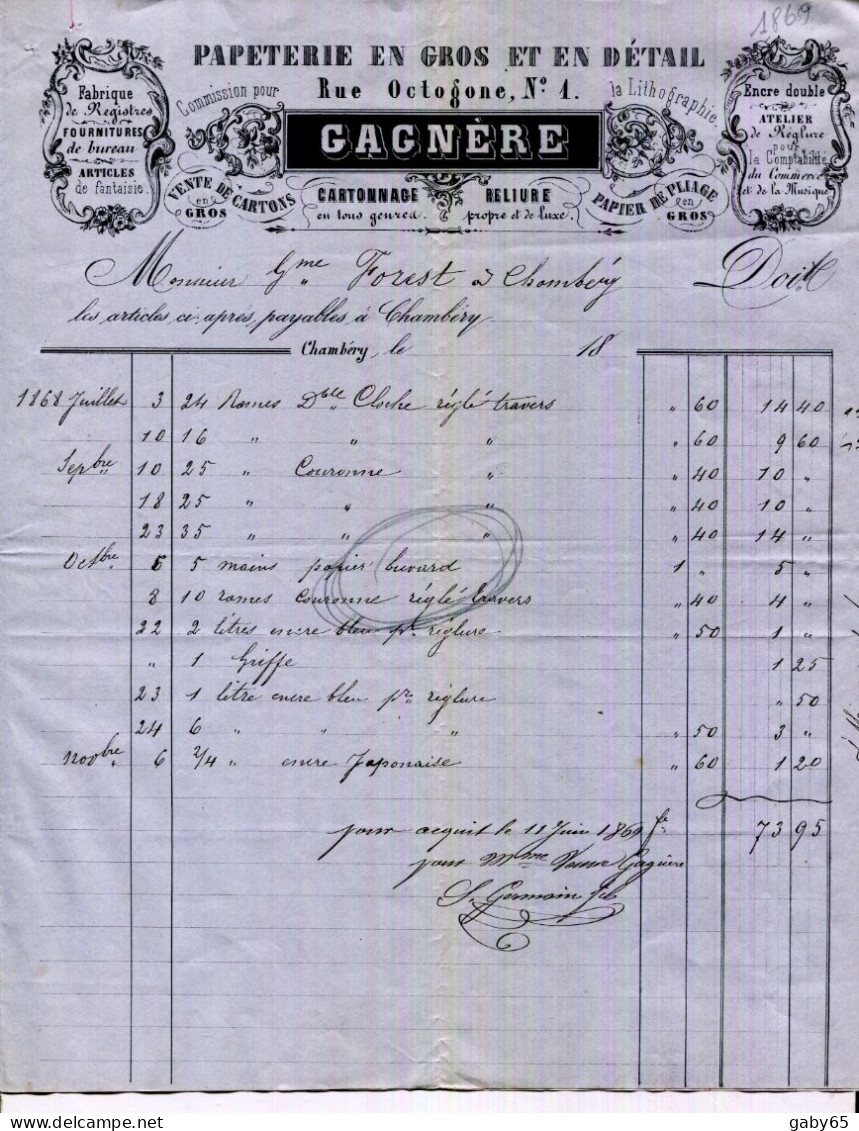 1869
PAPETERIE EN GROS ET EN DÉTAIL
Rue Octogone, Nº 1.
GAGNÈRE
Fabrique
de Registres
FOURNITURES
de bureau
ARTICLES
de fantaisie.
Commission pour
la Lithographie
Encre double
ATELIER
de Réglure
pour
la Comptabilité
du Commerce
et de la Musique
VENTE DE CARTONS
en
GROS
CARTONNAGE
en tous genres.
RELIURE
propre et de luxe.
PAPIER DE PLIAGE
en
GROS
Monsieur Gme Forest à Chambéry Doit
les articles ci-après, payables à Chambéry
Chambéry, le 18
1868 Juillet 3 24 Rames Dble Cloche réglé travers " 60 14 40
10 16 " " " " 60 9 60
Sepbre 10 25 " Couronne " " 40 10 "
18 25 " " " " 40 10 "
23 35 " " " " 40 14 "
Octbre 5 5 mains papier buvard 1 " 5 "
8 10 rames Couronne réglé travers " 40 4 "
22 2 litres encre bleu pr réglure " 50 1 "
" 1 Griffe 1 25
23 1 litre encre bleu pr réglure " 50
24 6 " " " " 50 3 "
Novbre 6 2/4 " encre Japonaise " 60 1 20
73 95
pour acquit le 11 Juin 1869
pour Mme Veuve Gagnère
S. Germain fils
gaby65